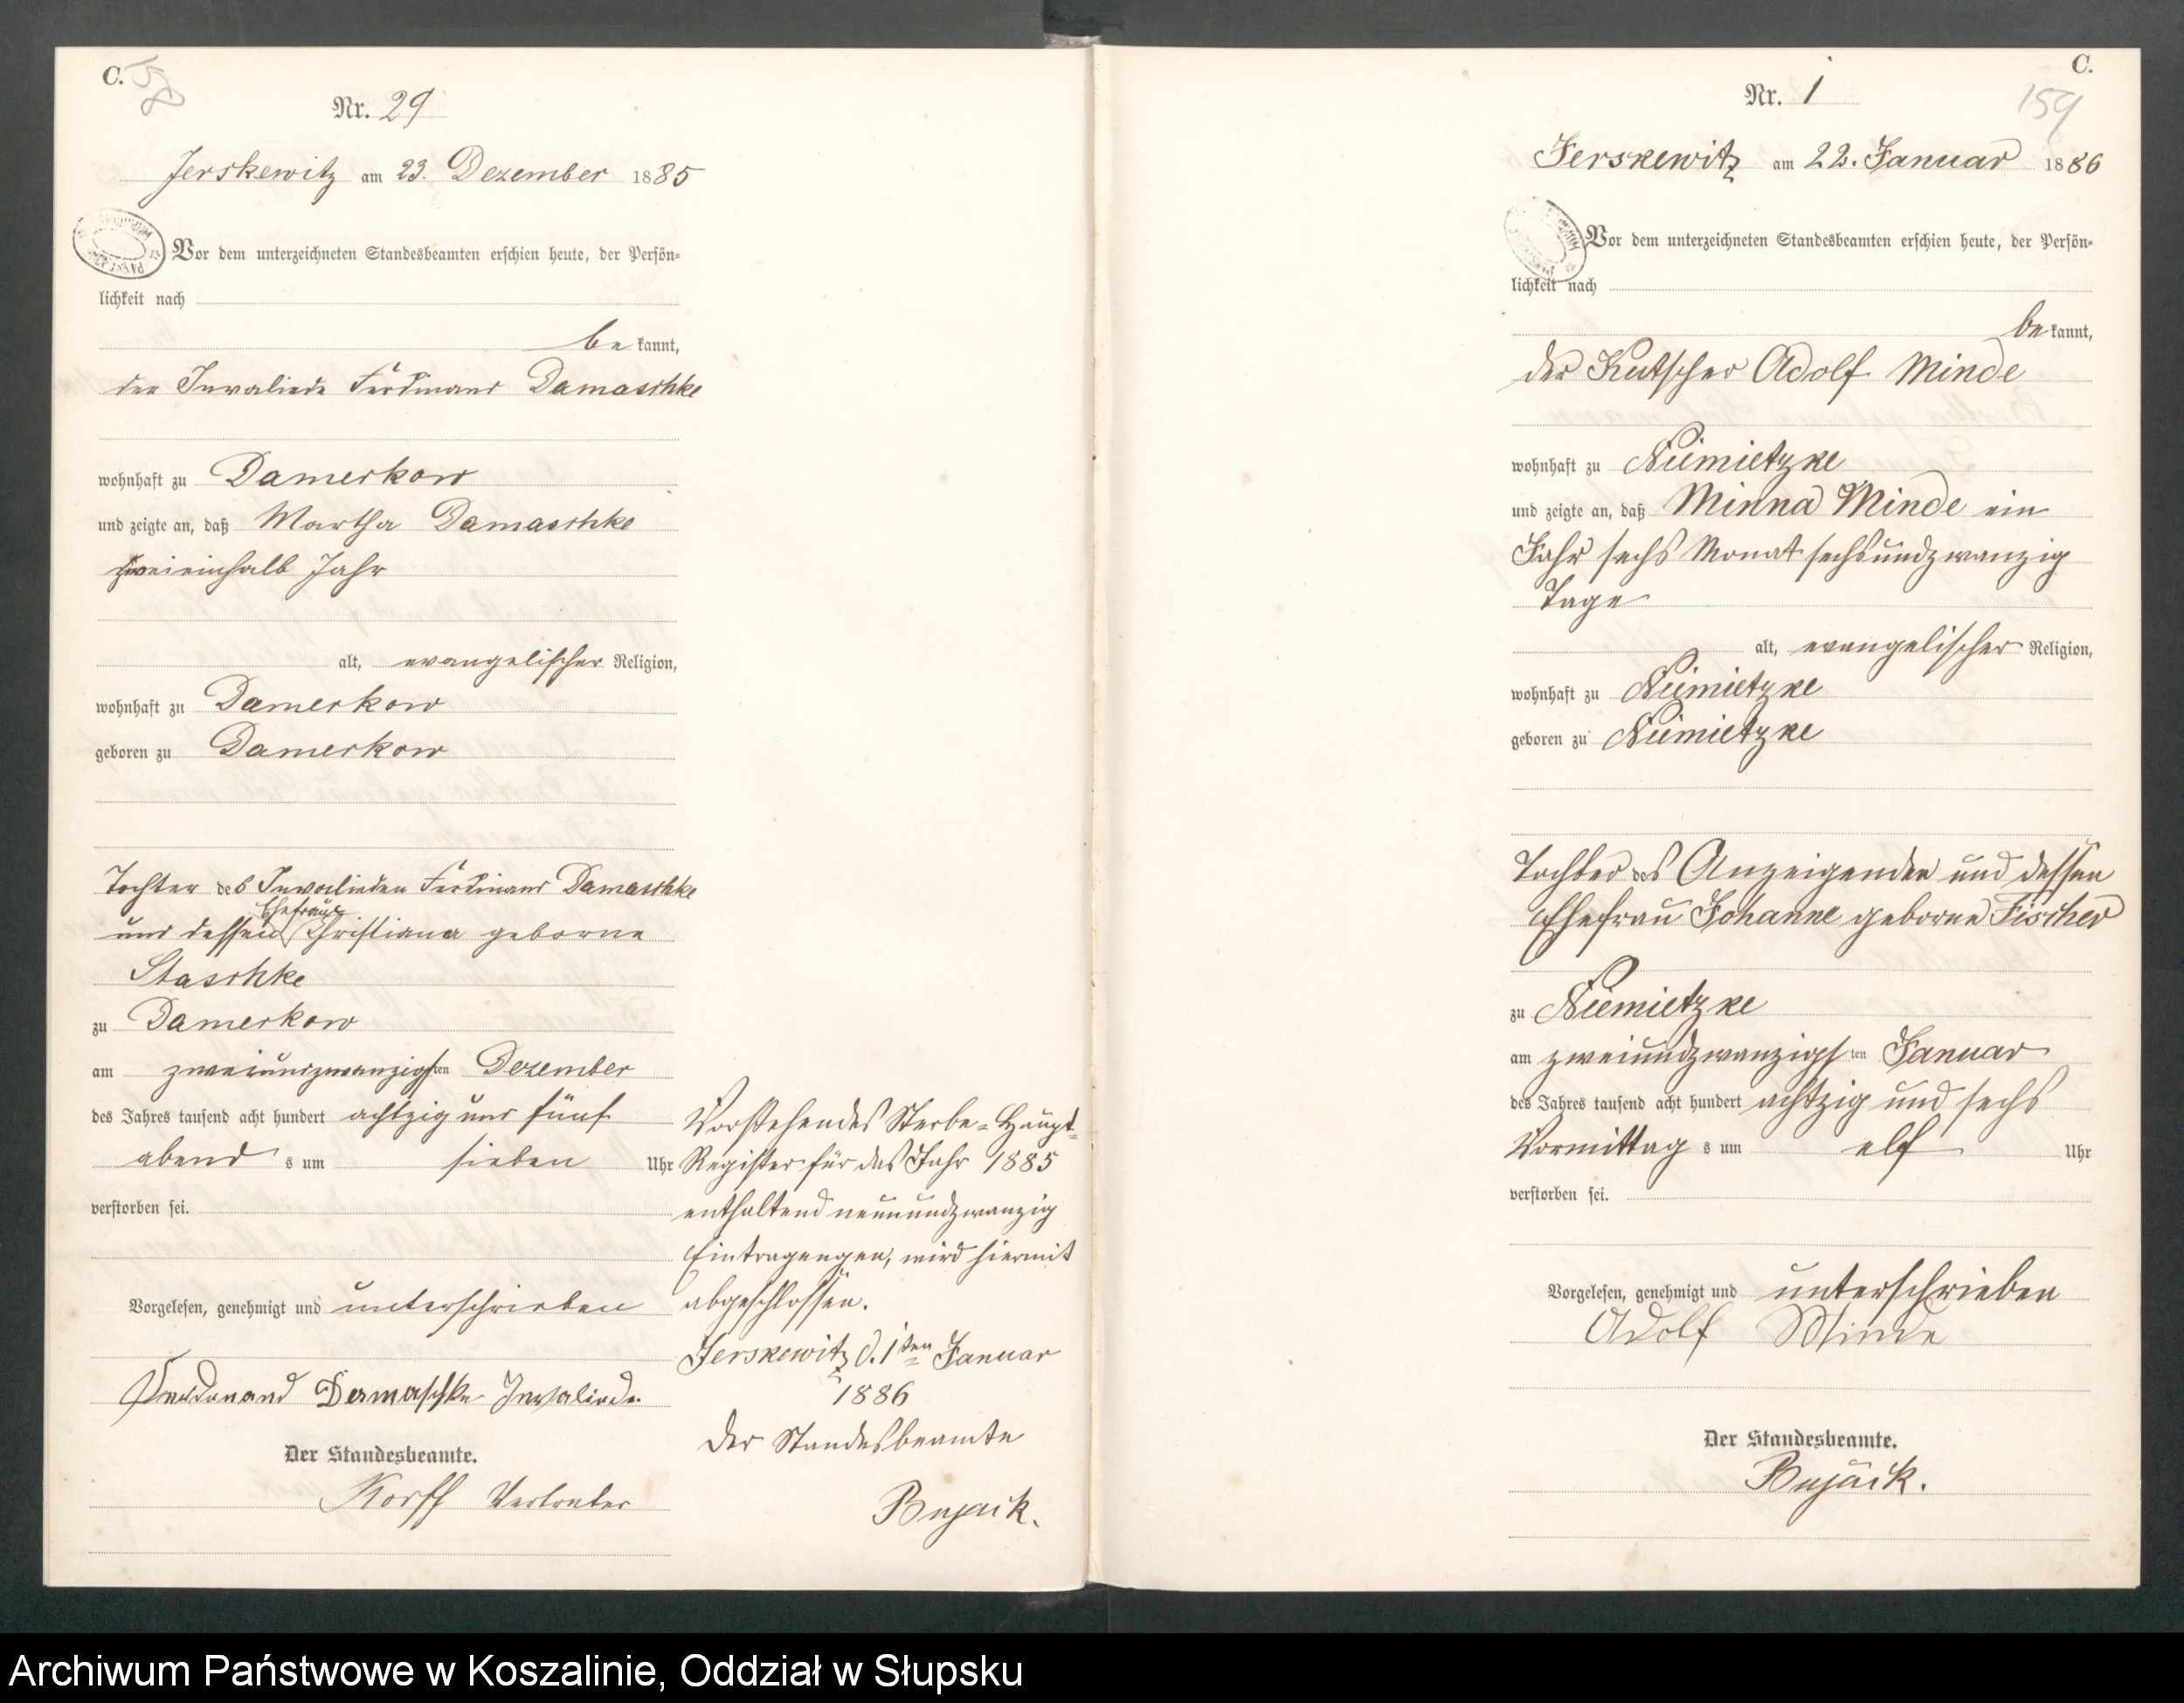 C. 58
Nr. 29
Jerskewitz am 23. Dezember 1885
Vor dem unterzeichneten Standesbeamten erschien heute, der Persön-
lichkeit nach
be kannt,
der Invaliede Ferdinand Damaschke
wohnhaft zu Damerkow
und zeigte an, daß Martha Damaschke
zweieinhalb Jahr
alt, evangelischer Religion,
wohnhaft zu Damerkow
geboren zu Damerkow
Tochter des Invalieden Ferdinand Damaschke
Ehefrau
und dessen Christiana geborne
Staschke
zu Damerkow
am zweiundzwanzigsten Dezember
des Jahres tausend acht hundert achtzig und fünf
abend s um sieben Uhr
verstorben sei.
Vorgelesen, genehmigt und unterschrieben
Ferdinand Damaschke Invaliede
Der Standesbeamte.
Korff Vertreter
Vorstehendes Sterbe-Haupt-
Register für das Jahr 1885
enthaltend neunundzwanzig
Eintragengen, wird hiermit
abgeschlossen.
Jerskewitz d. 1ten Januar
1886
Der Standesbeamte
Bujack.
C.
159
Nr. 1
Jerskewitz am 22. Januar 1886
Vor dem unterzeichneten Standesbeamten erschien heute, der Persön-
lichkeit nach
be kannt,
der Kutscher Adolf Minde
wohnhaft zu Niemietzke
und zeigte an, daß Minna Minde ein
Jahr sechs Monat sechsundzwanzig
Tage
alt, evangelischer Religion,
wohnhaft zu Niemietzke
geboren zu Niemietzke
Tochter des Anzeigenden und dessen
Ehefrau Johanne geborne Fischer
zu Niemietzke
am zweiundzwanzigsten Januar
des Jahres tausend acht hundert achtzig und sechs
Vormittag s um elf Uhr
verstorben sei.
Vorgelesen, genehmigt und unterschrieben
Adolf Minde
Der Standesbeamte.
Bujack.
Archiwum Państwowe w Koszalinie, Oddział w Słupsku